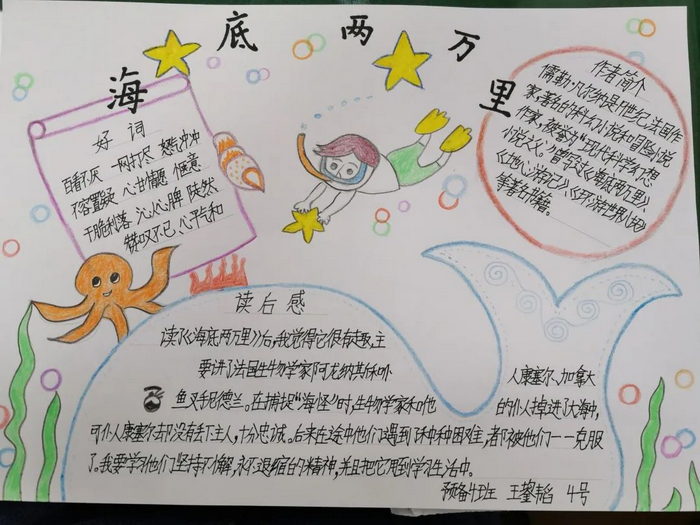 海底两万里
好词
百看不厌 一网打尽 怒气冲冲
不容置疑 心甘情愿 惬意
干脆利落 沁人心脾 陡然
赞叹不已 心平气和
作者简介
儒勒·凡尔纳是19世纪法国作
家,著名的科幻小说和冒险小说
作家,被誉为“现代科学幻想
小说之父”。曾写过《海底两万里》、
《地心游记》、《环游世界八十天》
等著名书籍。
读后感
读了《海底两万里》后,我觉得它很有趣,主
要讲了法国生物学家阿龙纳斯和仆
人康塞尔、加拿大
鱼叉手尼德兰。在捕捉“海怪”时,生物学家和他
的仆人掉进了大海中,
可仆人康塞尔却没有丢下主人,十分忠诚。后来在途中他们遇到了种种困难,都被他们一一克服
了。我要学习他们坚持不懈,永不退缩的精神,并且把它用到学习生活中。
预备4班 王 韬 4号